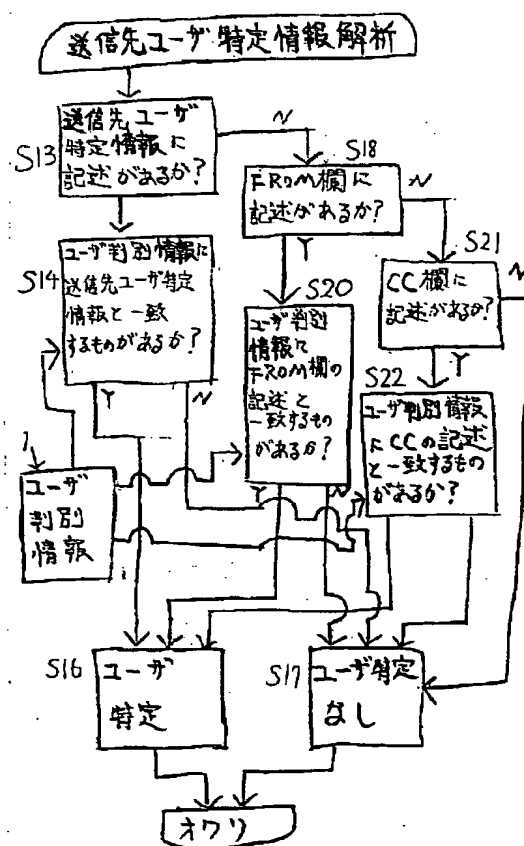 送信先ユーザ特定情報解析
S13
送信先ユーザ
特定情報に
記述があるか?
N
S18
FROM欄に
記述があるか?
N
S21
CC欄に
記述があるか?
N
Y
S14
ユーザ判別情報に
送信先ユーザ特定
情報と一致
するものがあるか?
Y
N
S20
ユーザ判別
情報に
FROM欄の
記述と
一致するもの
があるか?
Y
N
Y
S22
ユーザ判別情報
にCCの記述
と一致するもの
があるか?
1
ユーザ
判別
情報
S16
ユーザ
特定
S17
ユーザ特定
なし
オワリ